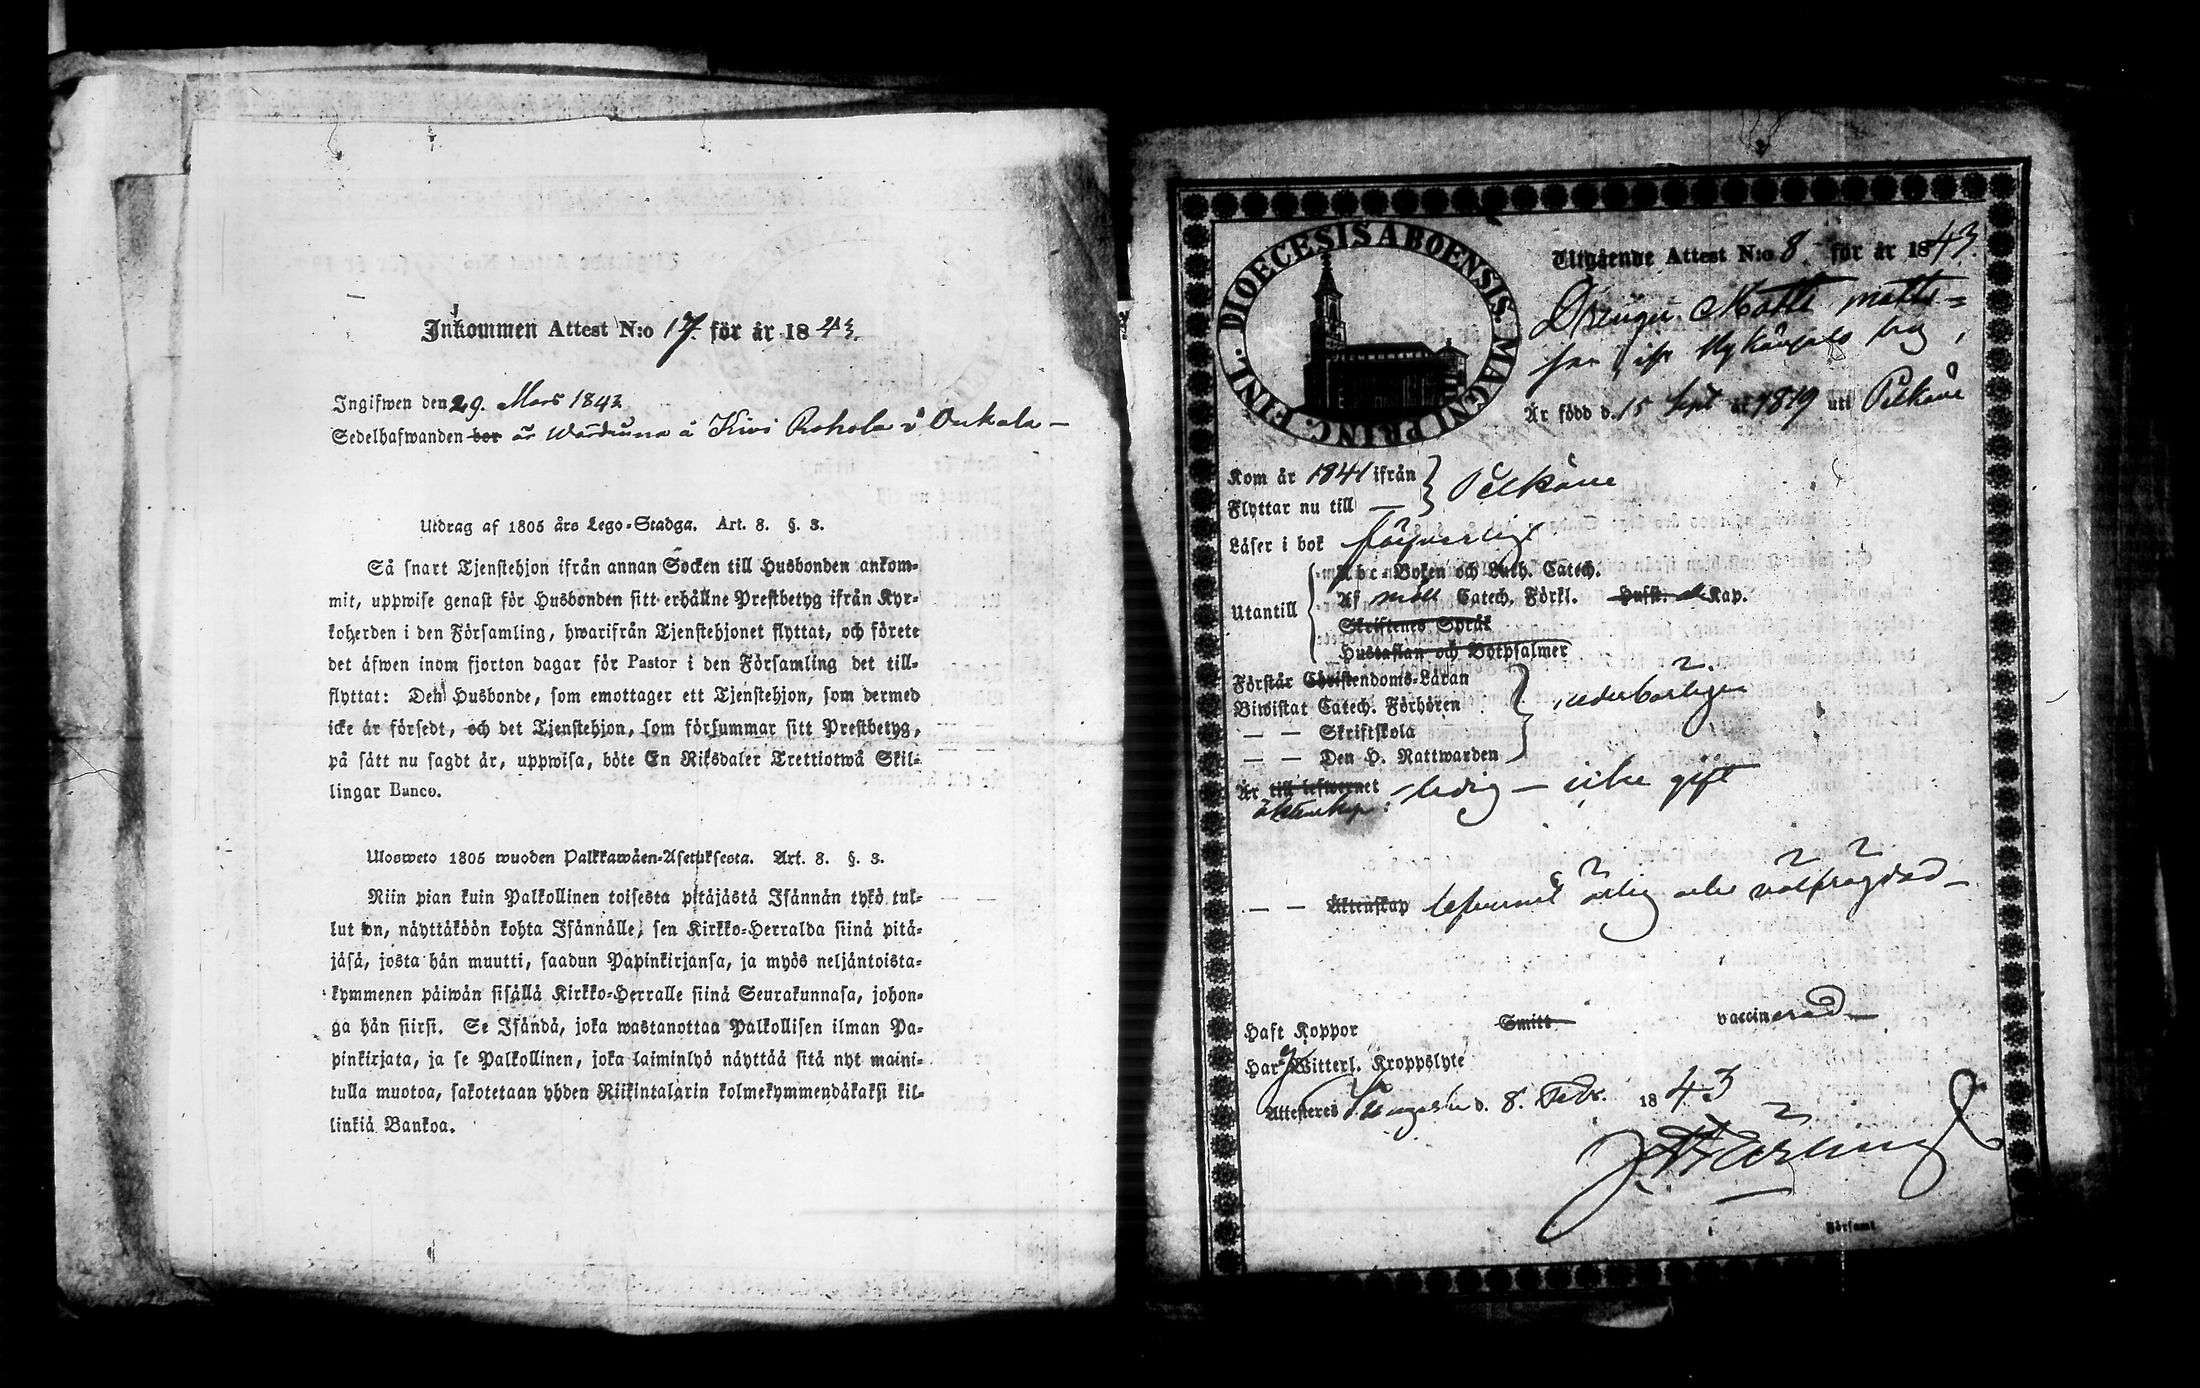 Inkommen Attest N:o 17. för år 1843.
Ingifwen den 29. Mars 1843
Sedelhafwanden bor är Wärdinna å Kivi Rohola i Onkala —
Utdrag af 1805 års Lego-Stadga. Art. 8. §. 3.
Så snart Tjenstehjon ifrån annan Socken till Husbonden ankom-
mit, uppwise genast för Husbonden sitt erhållne Prestbetyg ifrån Kyr-
koherden i den Församling, hwarifrån Tjenstehjonet flyttat, och förete
det äfwen inom fjorton dagar för Pastor i den Församling det till-
flyttat: Den Husbonde, som emottager ett Tjenstehjon, som dermed
icke är försedt, och det Tjenstehjon, som försummar sitt Prestbetyg,
på sätt nu sagdt är, uppwisa, böte En Riksdaler Trettiotwå Skil-
lingar Banco.
Ulosweto 1805 wuoden Palkkawäen-Asetuksesta. Art. 8. §. 3.
Niin pian kuin Palkollinen toisesta pitäjästä Isännän tykö tul-
lut on, näyttäköön kohta Isännälle, sen Kirkko-Herralda siinä pitä-
jäsä, josta hän muutti, saadun Papinkirjansa, ja myös neljäntoista-
kymmenen päiwän sisällä Kirkko-Herralle siinä Seurakunnasa, johon-
ga hän siirsi. Se Isändä, joka wastanottaa Palkollisen ilman Pa-
pinkirjata, ja se Palkollinen, joka laiminlyö näyttää sitä nyt maini-
tulla muotoa, sakotetaan yhden Riikintalarin kolmekymmendäkaksi kil-
linkiä Bankoa.
DIOECESIS ABOENSIS. MAGNI PRINC. FINL.
Utgående Attest N:o 8. för år 1843.
Drengen Matts Matts-
son
Är född d. 15 Sept år 1819 uti Pelkäne
Kom år 1841 ifrån
Flyttar nu till — Pelkäne
Läser i bok försvarligt
Utantill
Abc-Boken och Luth. Catech.
Af Catech. Förkl. Hufst. Kap.
Skriftenes Språk
Hustaflan och Botpsalmer
Förstår Christendoms-Läran
Biwistat Catech. Förhören
— — Skriftskola
— — Den H. Nattwarden
Är till lefwernet ledig — icke gift
äktenskap:
— — Äktenskap lefvernet ärlig och välfrägdad —
Haft Koppor Smitt vaccinerad —
Har Witterl. Kroppslyte
Attesteras d. 8. Febr. 1843
Församl.